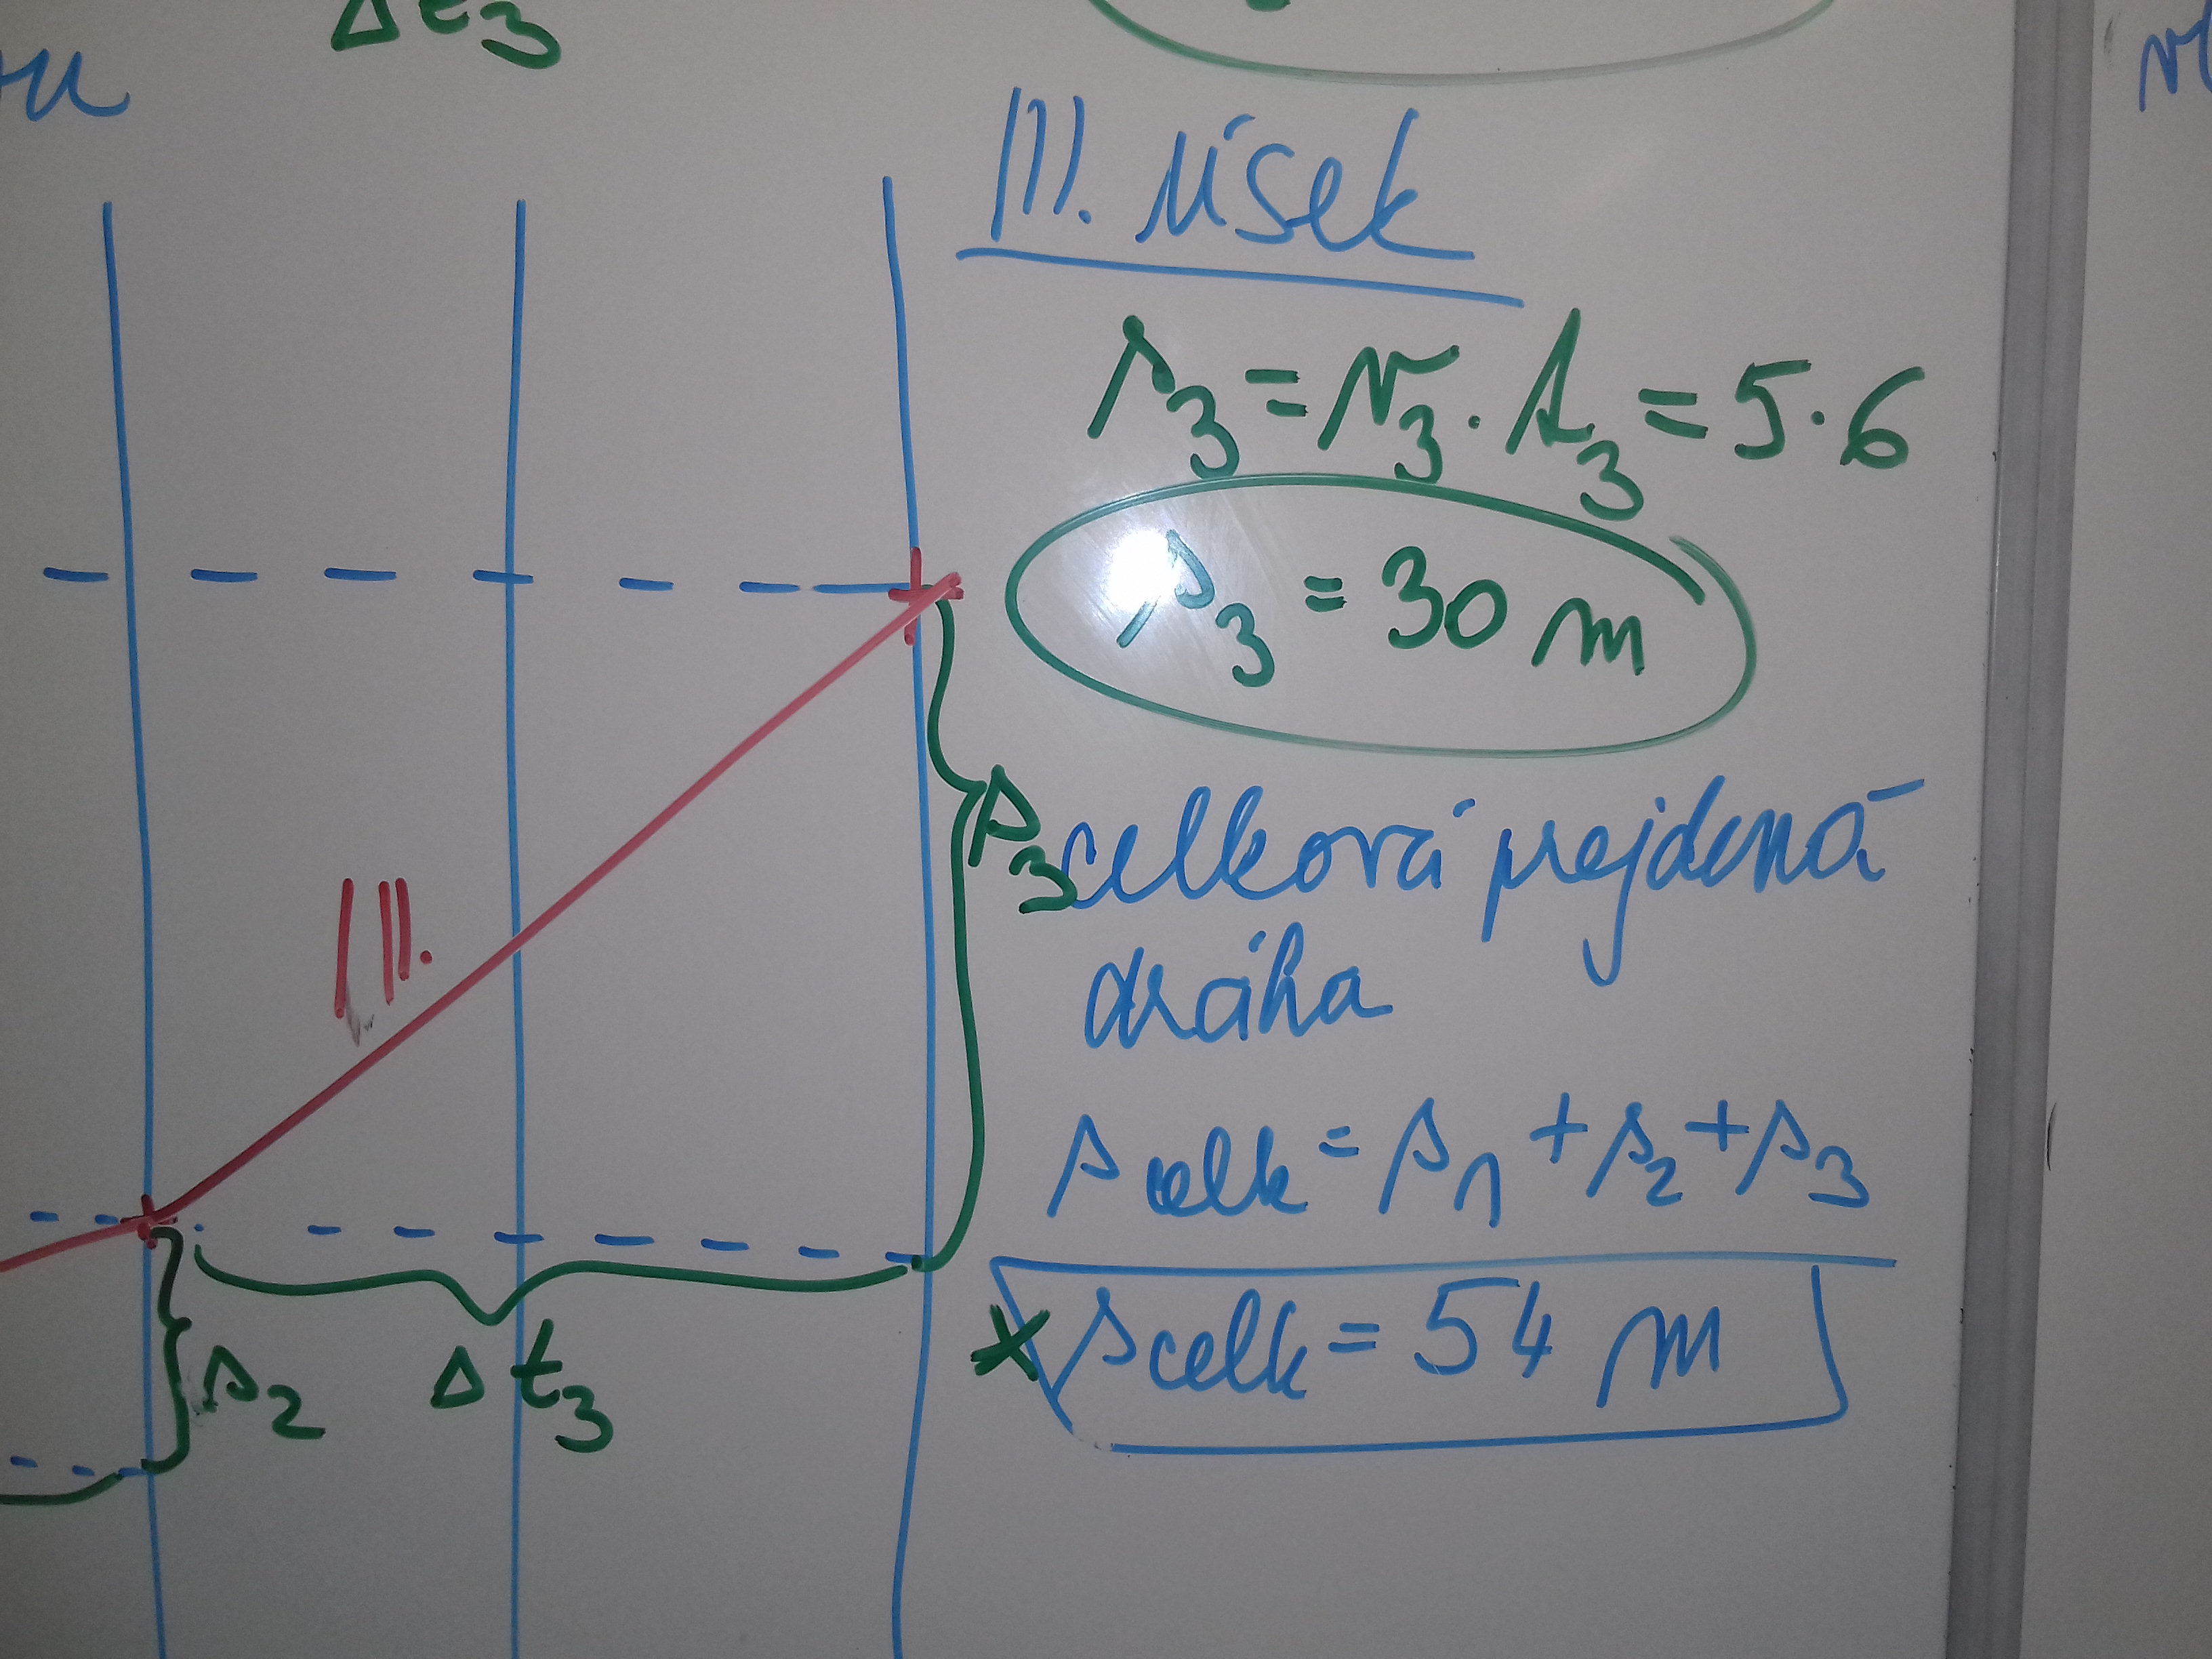 Δt₃
III. úsek
s₃ = v₃ · t₃ = 5·6
s₃ = 30 m
s₃
celková prejdená
dráha
III.
s celk = s₁ + s₂ + s₃
s celk = 54 m
s₂
Δt₃